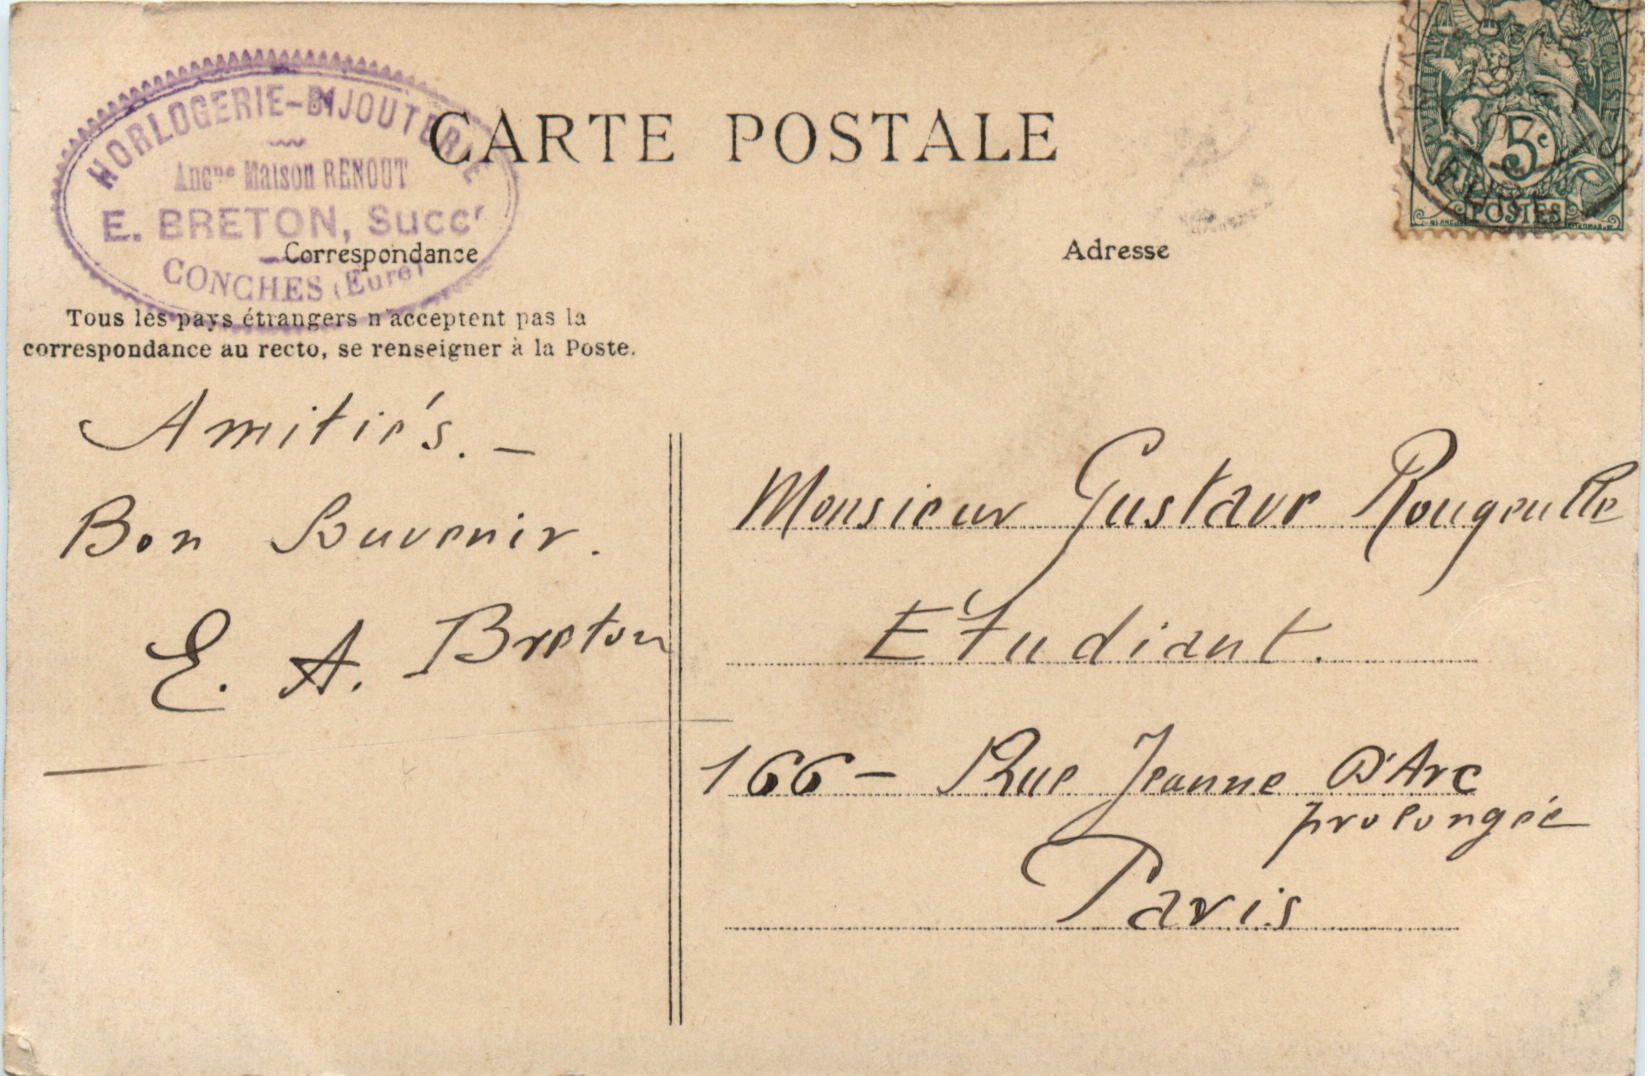 HORLOGERIE-BIJOUTERIE
Ancne Maison RENOUT
E. BRETON, Succr
CONCHES (Eure)
CARTE POSTALE
Correspondance
Adresse
Tous les pays étrangers n'acceptent pas la
correspondance au recto, se renseigner à la Poste.
5c
POSTES
EURE
Amitiés. —
Bon Souvenir.
E. A. Breton
Monsieur Gustave Rougeulle
Etudiant.
166 — Rue Jeanne D'Arc
prolongée
Paris